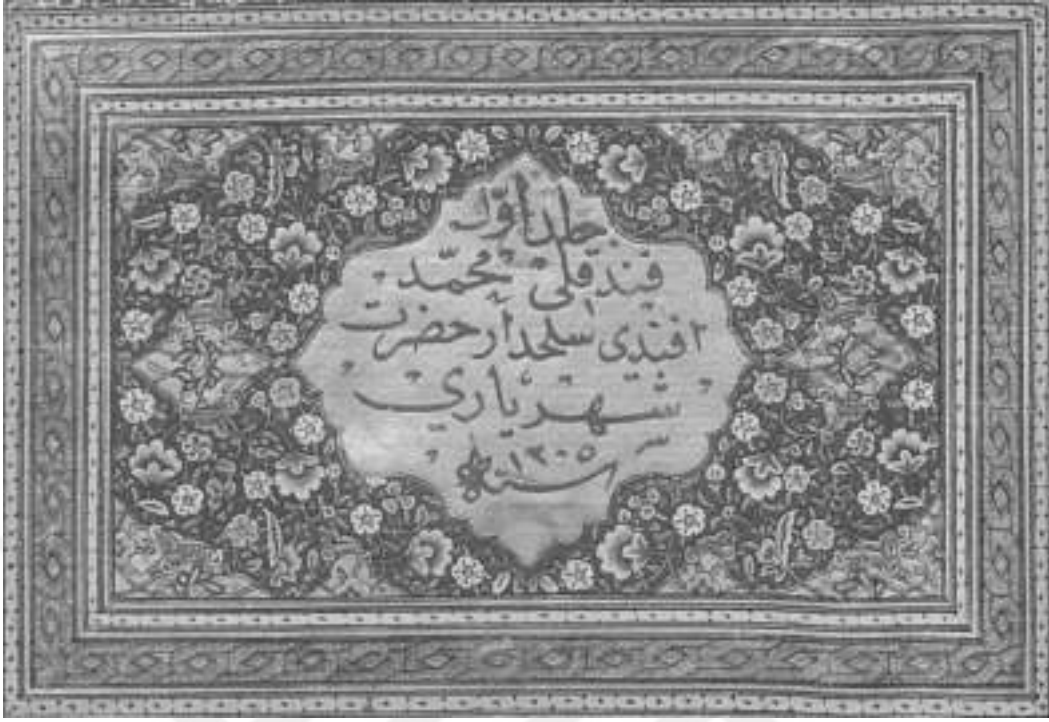 جلد اوّل
فندقلى محمّد
افندى سلحدار حضرت
شهريارى
سنه ١٢٠٥